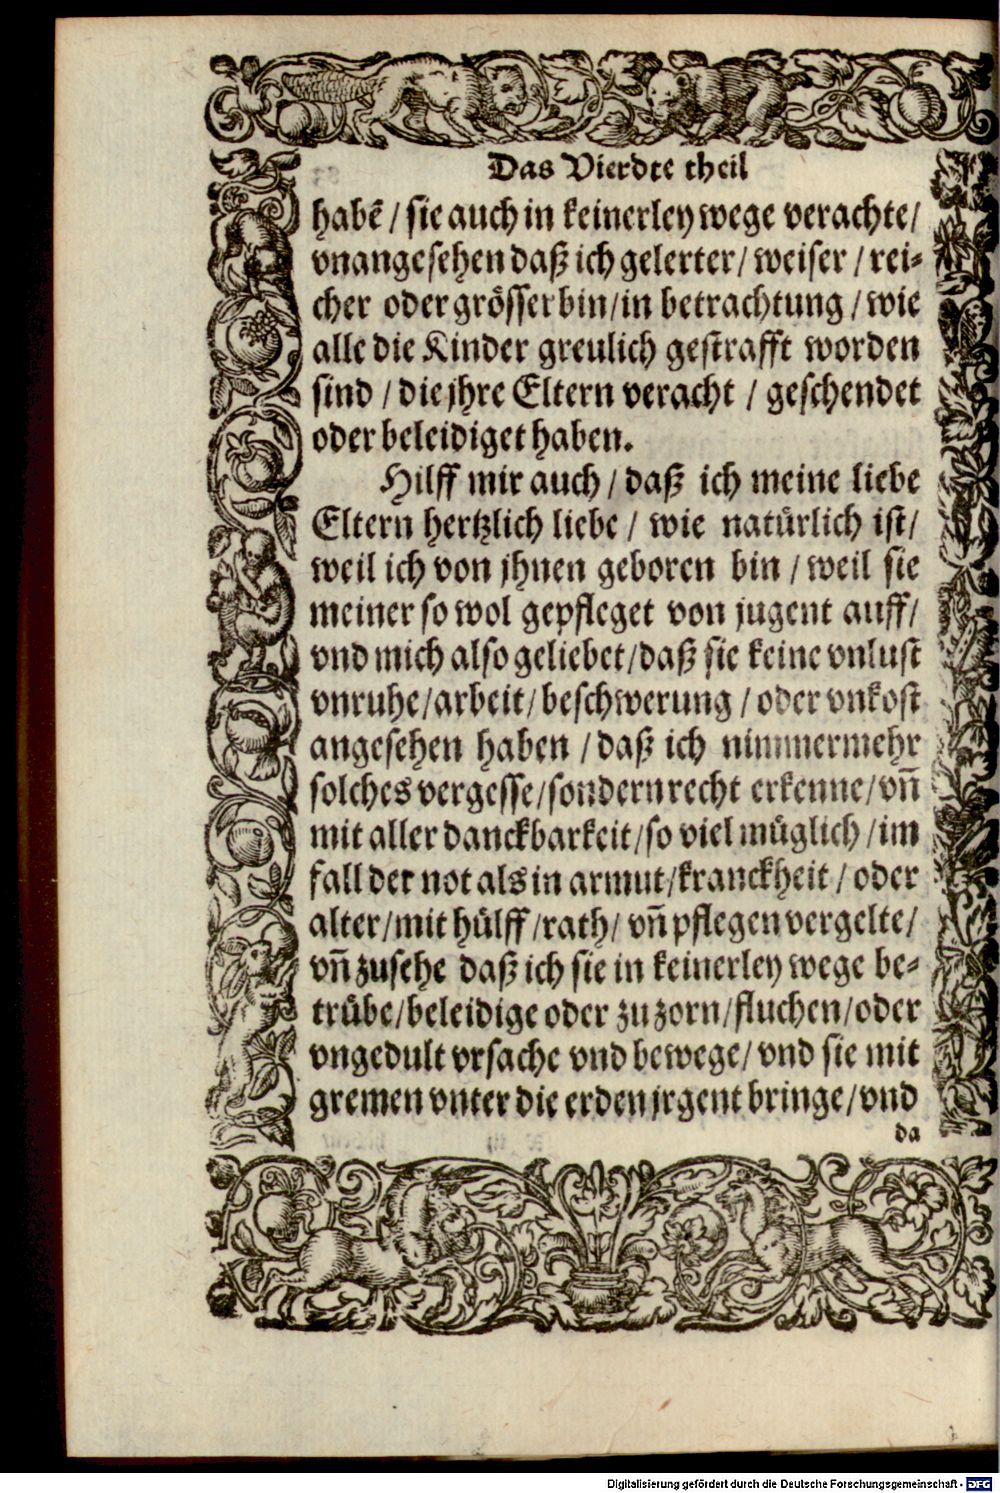 Das Vierdte theil
habẽ / sie auch in keinerley wege verachte/
vnangesehen daß ich gelerter/ weiser / rei⸗
cher oder grösser bin/in betrachtung / wie
alle die Kinder greulich gestrafft worden
sind / die jhre Eltern veracht / geschendet
oder beleidiget haben.
Hilff mir auch / daß ich meine liebe
Eltern hertzlich liebe / wie natürlich ist/
weil ich von jhnen geboren bin / weil sie
meiner so wol gepfleget von jugent auff/
vnd mich also geliebet/daß sie keine vnlust
vnruhe/arbeit/ beschwerung / oder vnkost
angesehen haben / daß ich nimmermehr
solches vergesse/sondern recht erkenne/vñ
mit aller danckbarkeit/so viel müglich / im
fall der not als in armut/kranckheit / oder
alter/mit hülff /rath/ vñ pflegen vergelte/
vñ zusehe daß ich sie in keinerley wege be⸗
trübe/beleidige oder zu zorn/fluchen/oder
vngedult vrsache vnd bewege/ vnd sie mit
gremen vnter die erden jrgent bringe/vnd
da
Digitalisierung gefördert durch die Deutsche Forschungsgemeinschaft - DFG